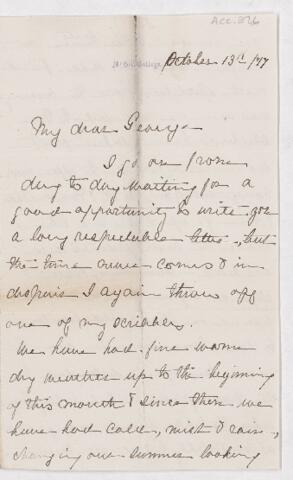 Acc. 826
McGill College
October 13th /77
My dear George
I go on from
day to day waiting for a
good opportunity to write you
a long respectable letter, but
the time never comes & in
despair I again throw off
one of my scribbles.
We have had fine warm
dry weather up to the beginning
of this month & since then we
have had cold, mist & rain,
changing our summer looking